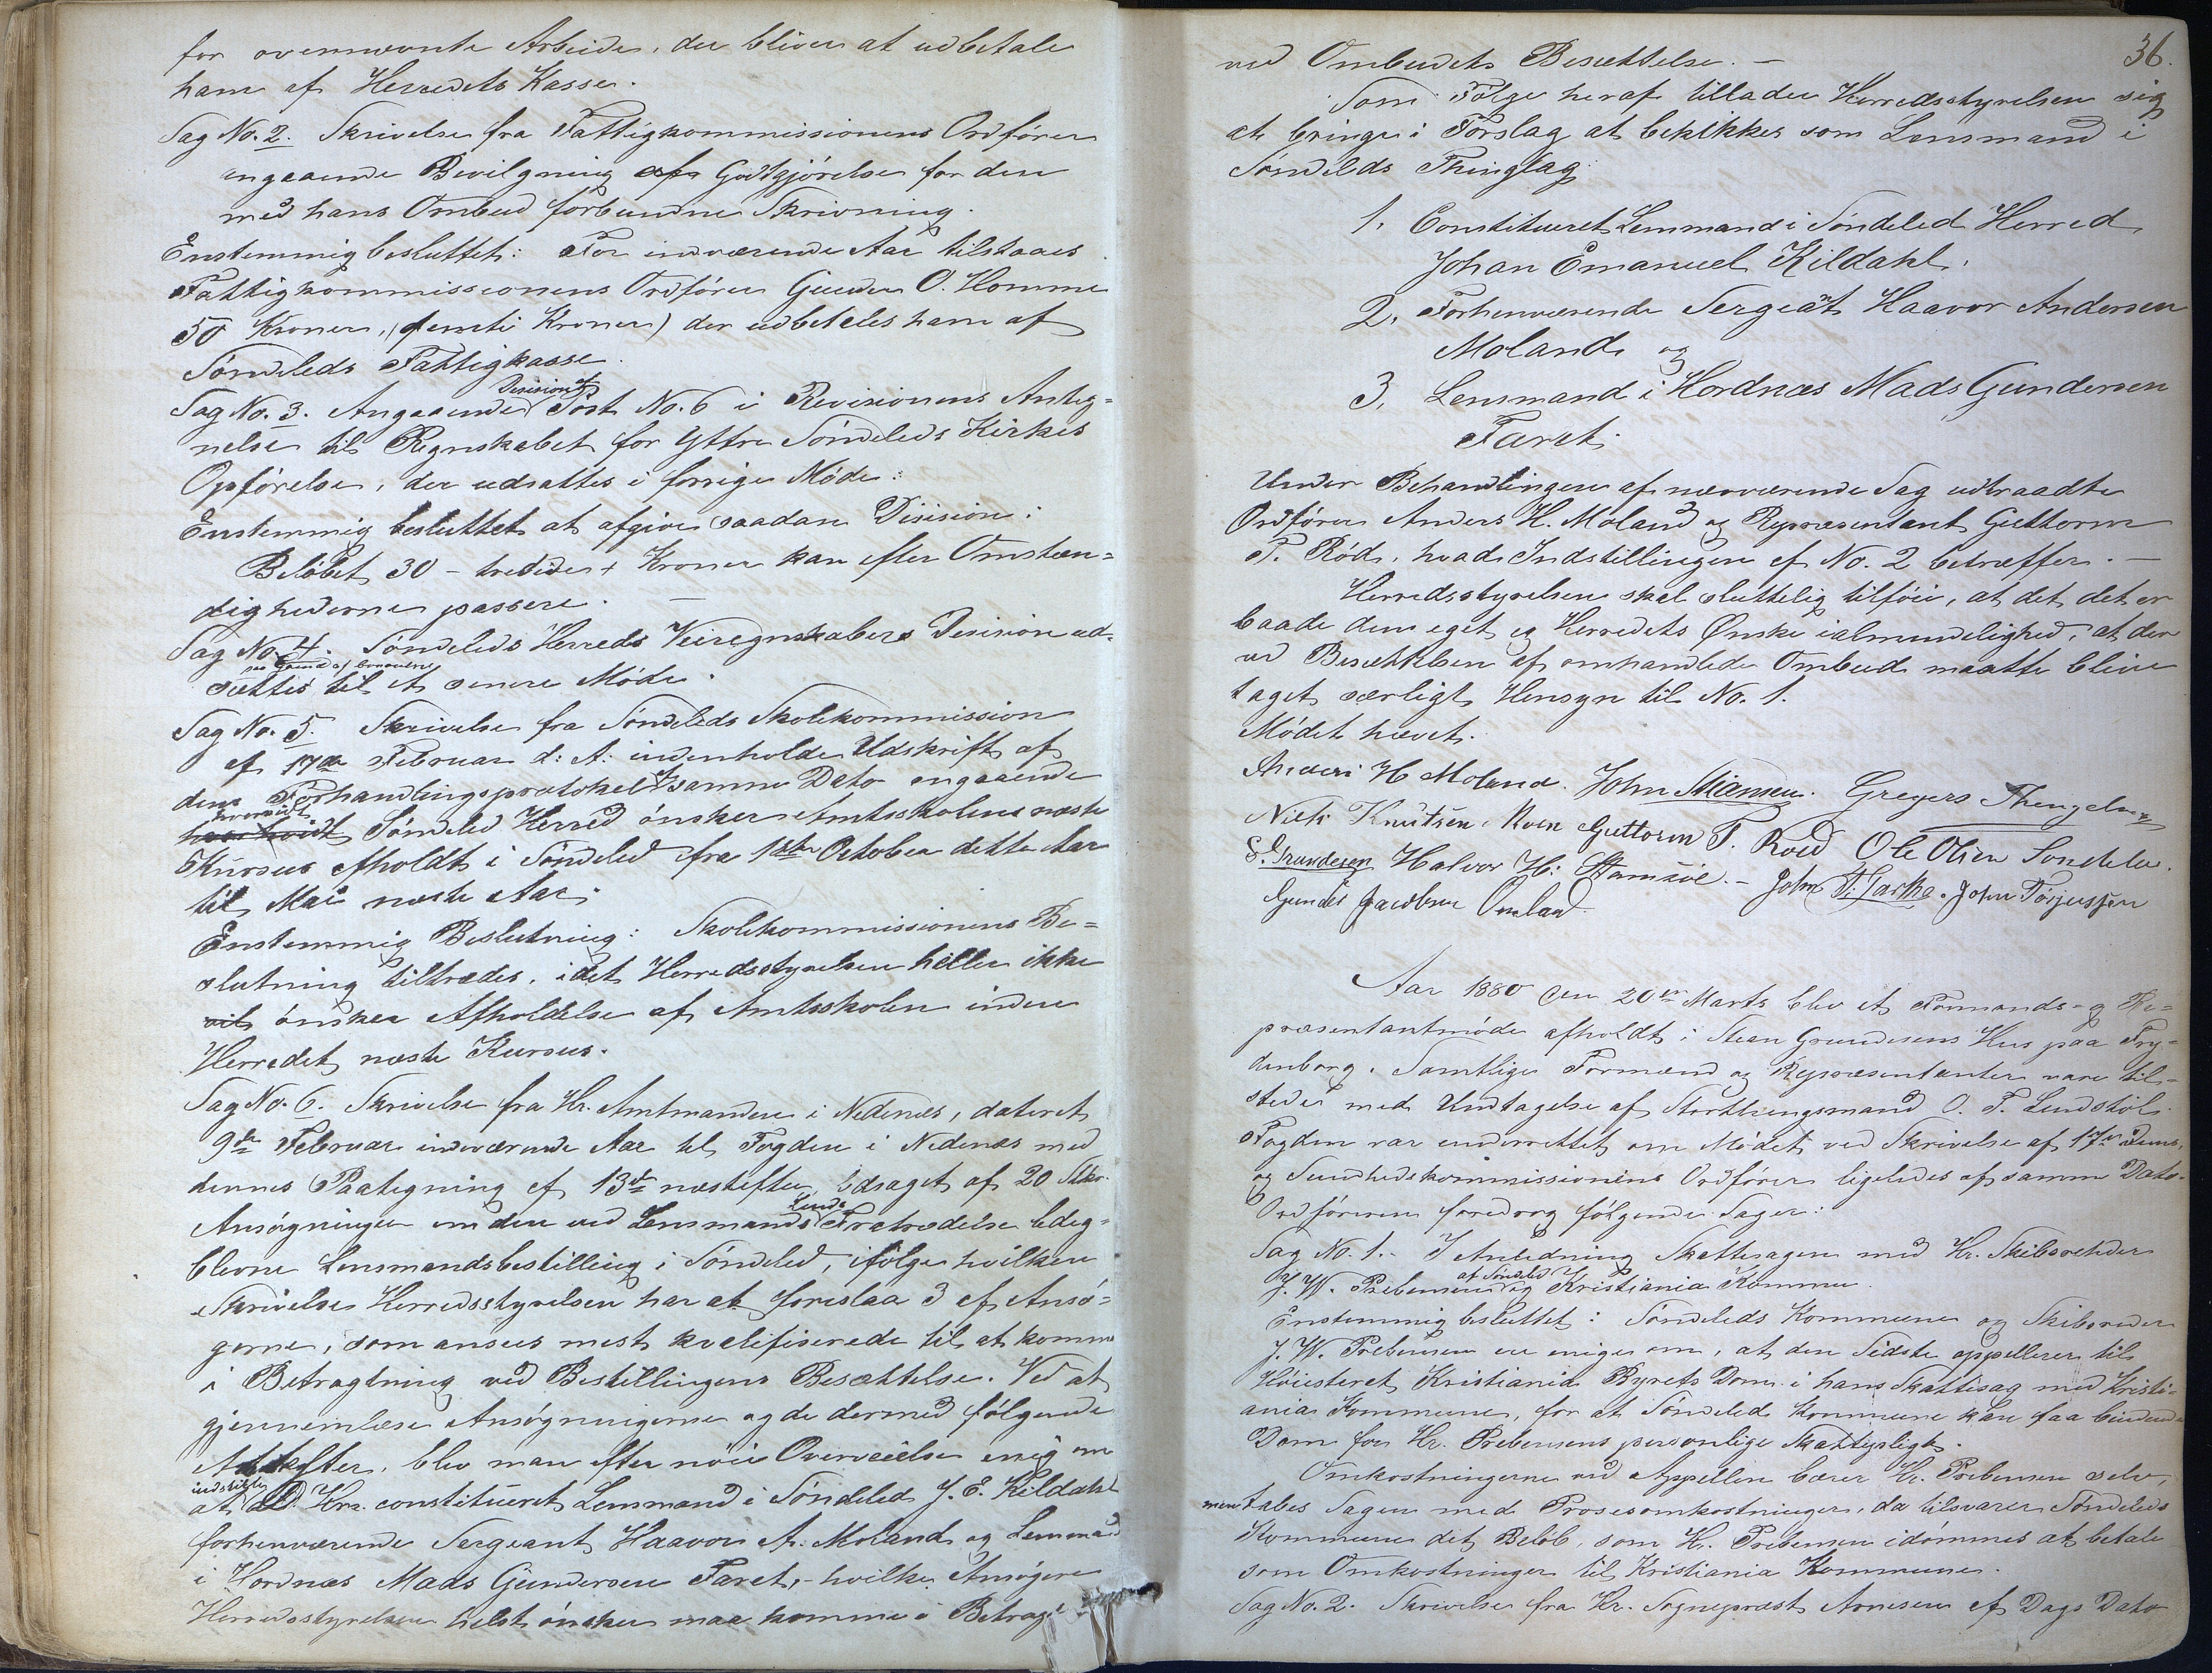 for overnævnte Arbeide, der bliver at udbetale
ham af Herredets Kasse.
Sag No. 2. Skrivelse fra Fattigkommissionens Ordfører
angaaende Bevilgning af Godtgjørelse for den
med hans Ombud forbundne Skrivning.
Enstemmig besluttet: For indværende Aar tilstaaes
Fattigkommissionens Ordfører Gunder O. Homme
50 Kroner, (femti Kroner) der udbetales ham af
Søndeleds Fattigkasse.
Decision af
Sag No. 3. Angaaende Post No. 6 i Revisionens Anteg=
nelse til Regnskabet for Yttre Søndeleds Kirkes
Opførelse, der udsattes i forrige Møde:
Enstemmig besluttet at afgive saadan Disision:
Beløbet 30 - tredive + Kroner kan efter Omstæn=
dighederne passere. —
Sag No. 4. Søndeleds Herreds Veiregnskabers Desision ud-
sættes til et senere Møde.
Sag No. 5. Skrivelse fra Søndeleds Skolekommission
af 17de Februar d: A: indenholde Udskrift af
dens Forhandlingsprotokol af samme Dato angaaende
hvorvidt
Søndeled Herred ønsker Amtsskolens næste
Kursus afholdt i Søndeled fra 1ste October dette Aar
til Mai næste Aar.
Enstemmig Beslutning: Skolekommissionens Be=
slutning tiltrædes, idet Herredsstyrelsen heller ikke
vil ønsker Afholdelse af Amtsskolen inden
Herredet næste Kursus.
Sag No. 6. Skrivelse fra Hr. Amtmanden i Nedenes, dateret
9de Februar indeværende Aar til Fogden i Nedenæs med
dennes Paategning af 13de næstefter, ledsaget af 20 Stkr.
Lunds
Ansøgninger om den ved Lensmands Fratrædelse ledig=
blevne Lensmandsbestilling i Søndeled, ifølge hvilken
Skrivelse Herredsstyrelsen har at foreslaa 3 af Ansø=
gerne, som ansees mest kvalifiserede til at komme
i Betragtning ved Bestillingens Besættelse. Ved at
gjennemlæse Ansøgningerne og de dermed følgende
Attester, blev man efter nøie Overveielse enig om
indstille
at Hrr. constitueret Lensmand i Søndeled J. E. Kildahl
forhenværende Sergeant Haavor A. Moland og Lensmand
i Hordnæs Mads Gundersen Faret, - hvilke Ansøgere
Herredsstyrelsen helst ønsker maa komme i Betragt
36.
ved Ombudets Besættelse. —
Som Følge heraf tillader Herredsstyrelsen sig
at bringe i Forslag at beskikkes som Lensmand i
Søndeleds Thinglag:
1. Constitueret Lensmand i Søndeled Herred
Johan Emanuel Kildahl.
2. Forhenværende Sergeat Haavor Andersen
Moland og
3. Lensmand i Hordnæs Mads Gundersen
Faret.
Under Behandlingen af nærværende Sag udtraadte
Ordfører Anders H. Moland og Repræsentant Guttorm
T. Rød, hvad Indstillingen af No. 2 betræffer. —
Herredsstyrelsen skal sluttelig tilføie, at det det er
baade dens eget og Herredets Ønske ialmindelighed, at der
ved Besættelsen af omhandlede Ombud maatte blive
taget særligt Hensyn til No. 1.
Mødet hævet.
Anders H Moland. John Gregers Thengelsen
Niels Knutsen Guttorm T. Røed Ole Olsen Søndeled.
S. Grundesen Halvor H: John T: John Torjussen
Gunder Jacobsen
Aar 1880 den 20de Marts blev et Formands- og Re=
præsentantmøde afholdt i Steen Grundesens Hus paa Fry=
denborg. Samtlige Formænd og Repræsentanter vare til=
stede med Undtagelse af Storthingsmand O. T. Lindstøl.
Fogden var underrettet om Mødet ved Skrivelse af 17de dens,
og Sundhedskommissionens Ordfører ligeledes af samme Dato.
Ordføreren foredrog følgende Sager:
Sag No. 1. I Anledning Skattesagen med Hr. Skibsrheder
af Søndeled
J. W. Prebensen og Kristiania Kommune.
Enstemmig besluttet: Søndeleds Kommune og Skibsreder
J. W. Prebensen ere enige om, at den Sidste appellerer til
Høiesteret Kristiania Byrets Dom i hans Skattesag med Kristi=
ania Kommune, for at Søndeled Kommune kan faa bindende
Dom for Hr. Prebensens personlige Skattepligt.
Omkostningerne ved Appellen bærer Hr. Prebensen selv,
men tabes Sagen med Prosesomkostninger, da tilsvarer Søndeleds
Kommune det Beløb, som Hr. Prebensen idømmes at betale
som Omkostninger til Kristiania Kommune.
Sag No. 2. Skrivelse fra Hr. Sognepræst Arnesen af Dags Dato